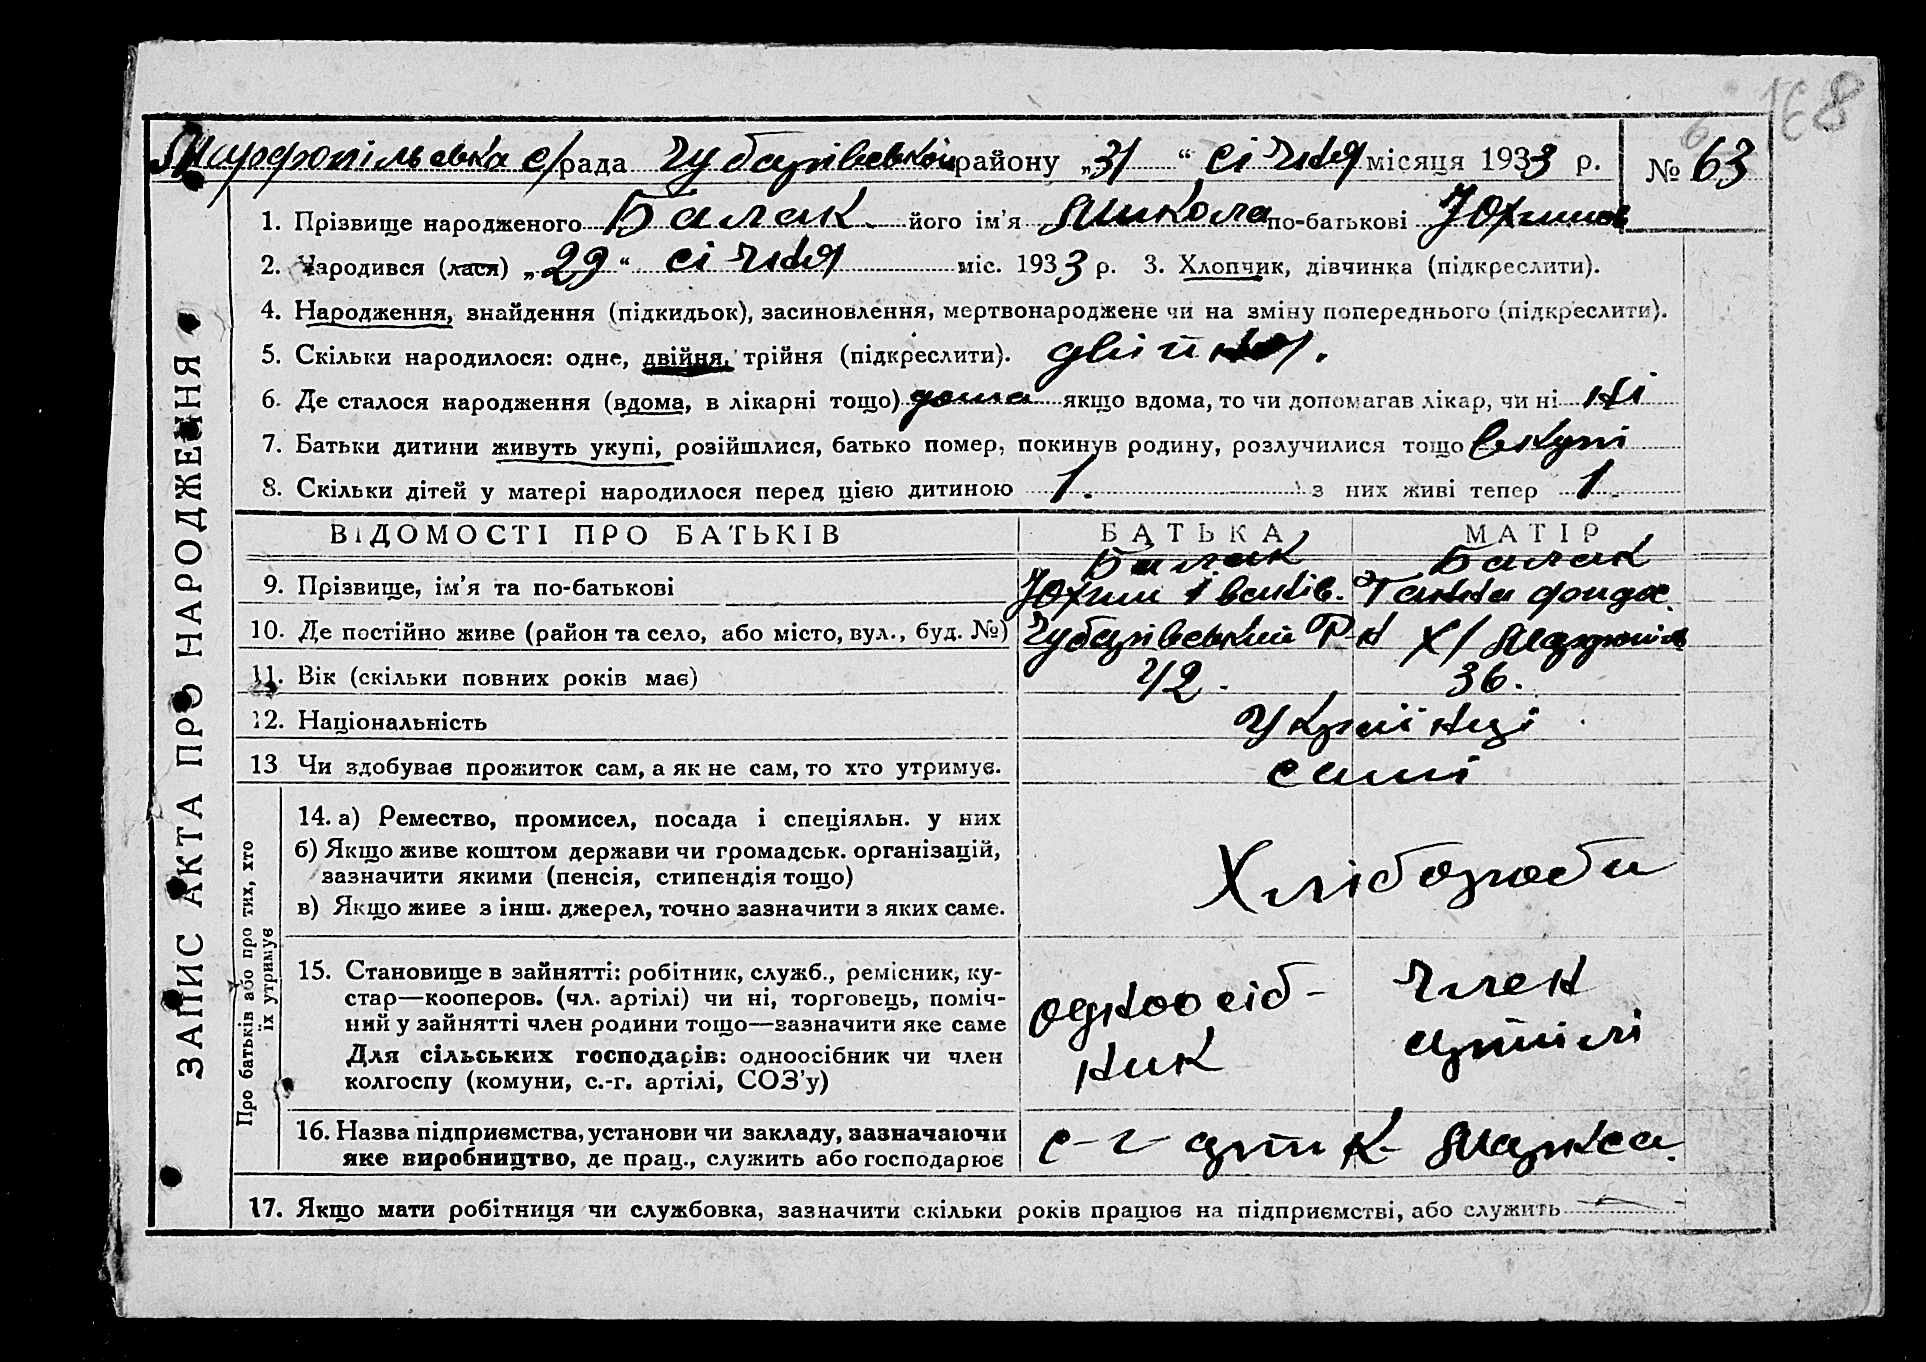 168
Марфопільська с/рада Чубарівського району „31“ січня місяця 1933 р. № 63
ЗАПИС АКТА ПРО НАРОДЖЕННЯ
1. Прізвище народженого Балак його ім’я Микола по-батькові Юхимов
2. Народився (лася) „29“ січня міс. 1933 р. 3. Хлопчик, дівчинка (підкреслити).
4. Народження, знайдення (підкидьок), засиновлення, мертвонароджене чи на зміну попереднього (підкреслити).
5. Скільки народилося: одне, двійня, трійня (підкреслити). двійня.
6. Де сталося народження (вдома, в лікарні тощо) дома якщо вдома, то чи допомагав лікар, чи ні ні
7. Батьки дитини живуть укупі, розійшлися, батько помер, покинув родину, розлучилися тощо вкупі
8. Скільки дітей у матері народилося перед цією дитиною 1. з них живі тепер 1.
ВІДОМОСТІ ПРО БАТЬКІВ БАТЬКА МАТІР
Балак Балак
9. Прізвище, ім’я та по-батькові Юхим Іванів. Ганна
10. Де постійно живе (район та село, або місто, вул., буд. №) Чубарівський Р-н Х/ Марфопіль
11. Вік (скільки повних років має) 42. 36.
12. Національність Українці
13 Чи здобував прожиток сам, а як не сам, то хто утримує. самі
Про батьків або про тих, хто
їх утримує
14. а) Ремество, промисел, посада і спеціяльн. у них
б) Якщо живе коштом держави чи громадськ. організацій,
зазначити якими (пенсія, стипендія тощо) Хлібороби
в) Якщо живе з інш. джерел, точно зазначити з яких саме.
15. Становище в зайнятті: робітник, служб., ремісник, ку-
стар—кооперов. (чл. артілі) чи ні, торговець, поміч-
ний у зайнятті член родини тощо—зазначити яке саме
Для сільських господарів: одноосібник чи член
колгоспу (комуни, с.-г. артілі, СОЗ’у)
одноосіб-
ник
Член
артілі
16. Назва підприємства, установи чи закладу, зазначаючи
яке виробництво, де прац., служить або господарює с-г арт К. Маркса.
17. Якщо мати робітниця чи службовка, зазначити скільки років працює на підприємстві, або служить —